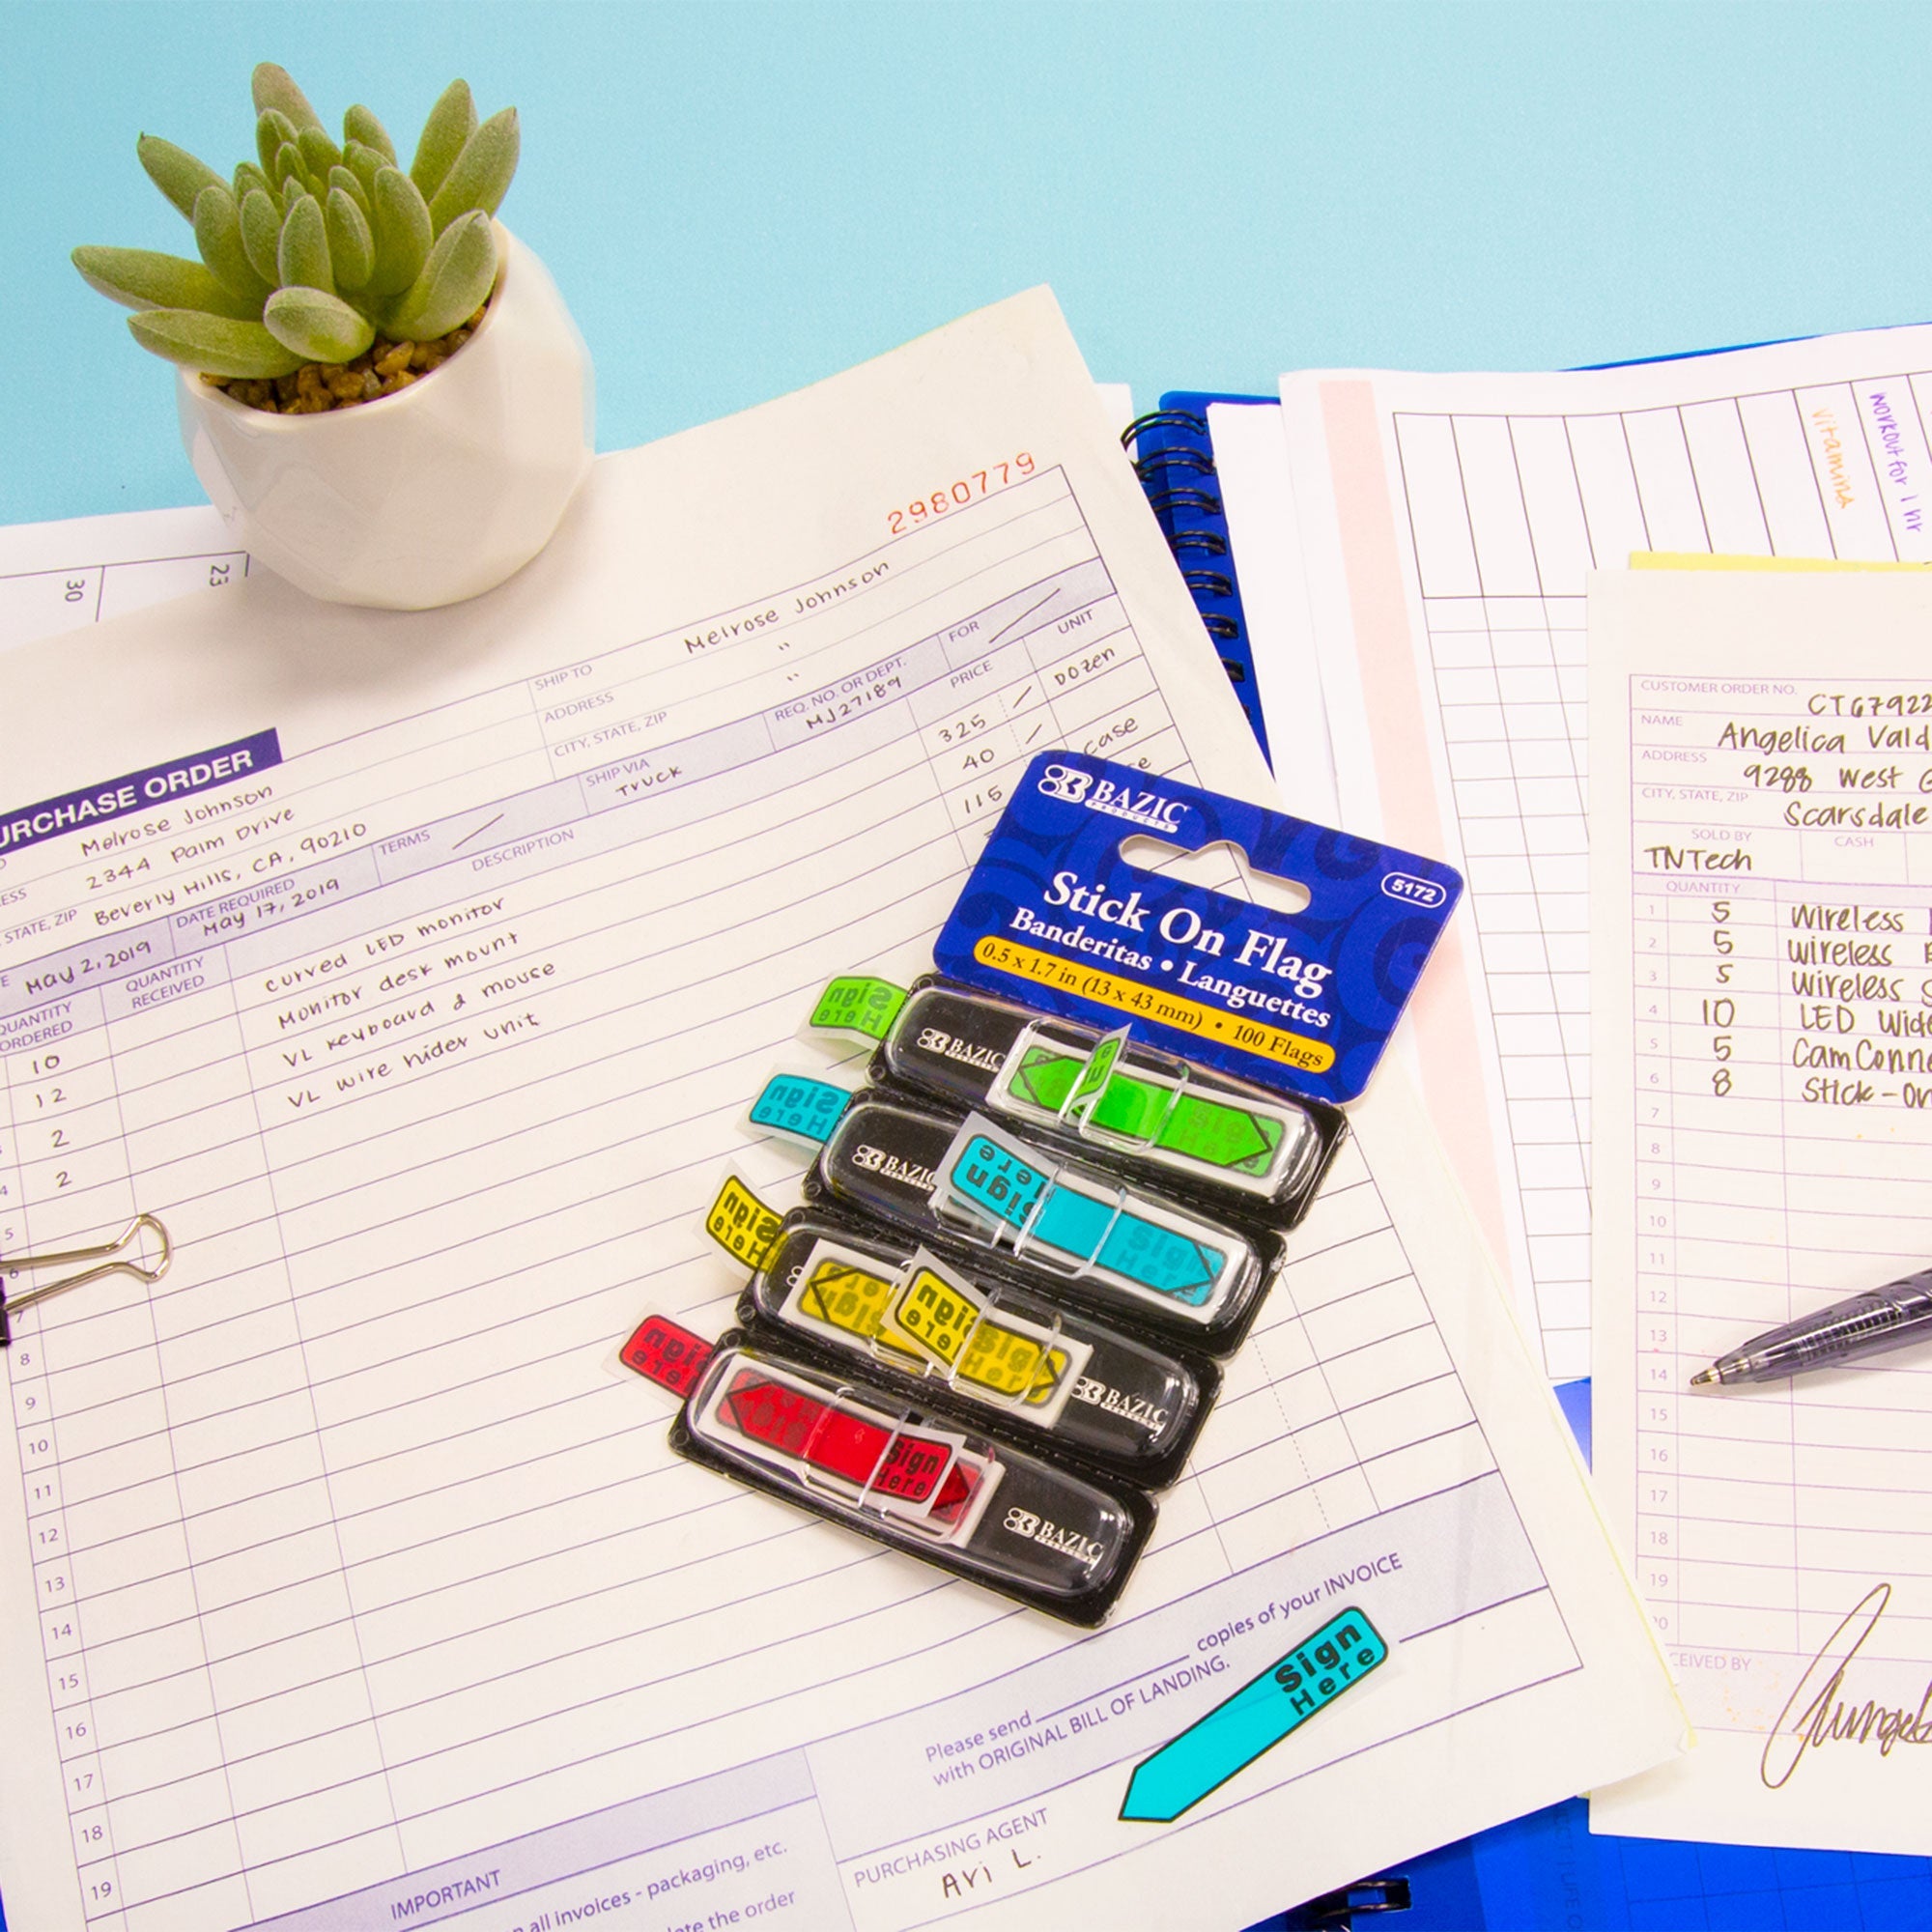 30
23
2980779
SHIP TO Melrose Johnson
ADDRESS "
CITY, STATE, ZIP "
PURCHASE ORDER
Melrose Johnson
2344 Palm Drive
STATE, ZIP Beverly Hills, CA, 90210
May 2, 2019
DATE REQUIRED
May 17, 2019
TERMS
SHIP VIA
Truck
REQ. NO. OR DEPT.
MJ27189
FOR
QUANTITY
ORDERED
QUANTITY
RECEIVED
DESCRIPTION
PRICE
UNIT
10 curved LED monitor 325 Dozen
12 Monitor desk mount 40 case
2 VL keyboard & mouse 115
4 2 VL wire hider unit
5
6
7
8
9
10
11
12
13
14
15
16
17
18
19
IMPORTANT
all invoices - packaging, etc.
the order
Please send copies of your INVOICE
with ORIGINAL BILL OF LANDING.
PURCHASING AGENT
Ari L.
Sign
Here
BAZIC
PRODUCTS
5172
Stick On Flag
Banderitas • Languettes
0.5 x 1.7 in (13 x 43 mm) • 100 Flags
Sign
Here
BAZIC
Sign
Here
Sign
Here
BAZIC
Sign
Here
Sign
Here
Sign
Here
BAZIC
Sign
Here
Sign
Here
BAZIC
vitamins
workout for 1 hr
CUSTOMER ORDER NO. CT67922
NAME Angelica Vald
ADDRESS 9288 West G
CITY, STATE, ZIP Scarsdale
SOLD BY CASH
TNTech
QUANTITY
1 5 Wireless
2 5 Wireless
3 5 Wireless
4 10 LED Wide
5 5 Cam Conne
6 8 Stick-on
7
8
9
10
11
12
13
14
15
16
17
18
19
20
CEIVED BY